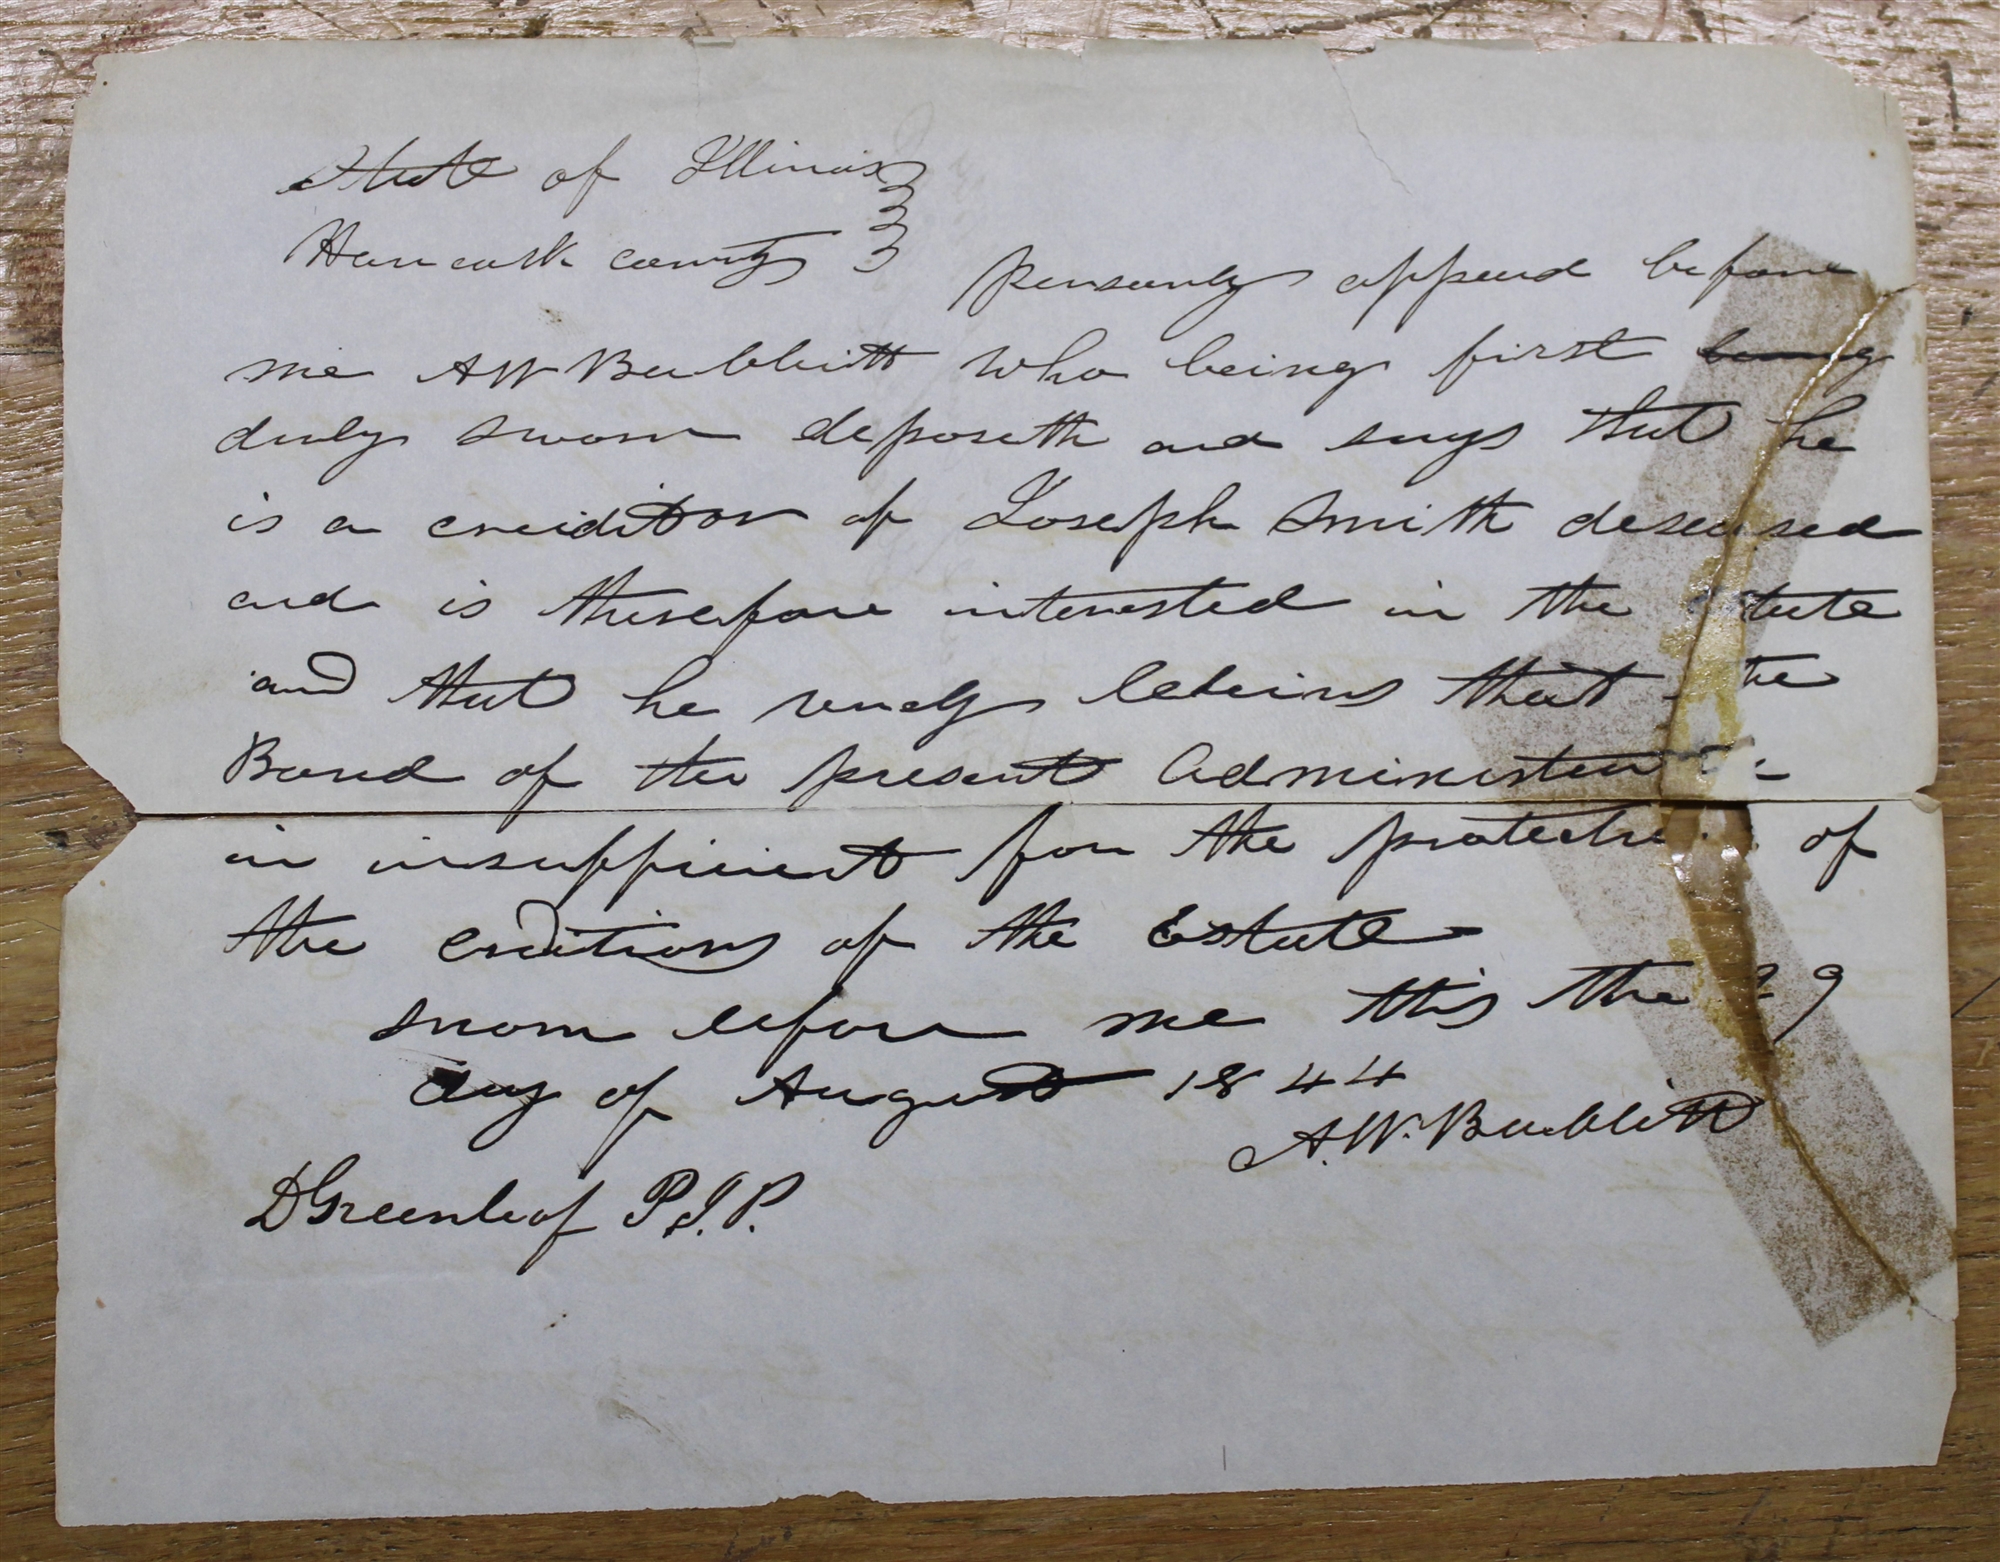 State of Illinois
Hancock county
Personly appeard before
me A W Babbitt who being first being
duly sworn deposeth and says that he
is a creiditor of Joseph Smith deseased
and is therefore interested in the state
and that he verely beleives that the
Bond of the present Administrat
in insufficient for the protectio of
the creditiors of the Estate
sworn before me this the 29
day of August 1844
A. W. Babbitt
D Greenleaf P. J. P.